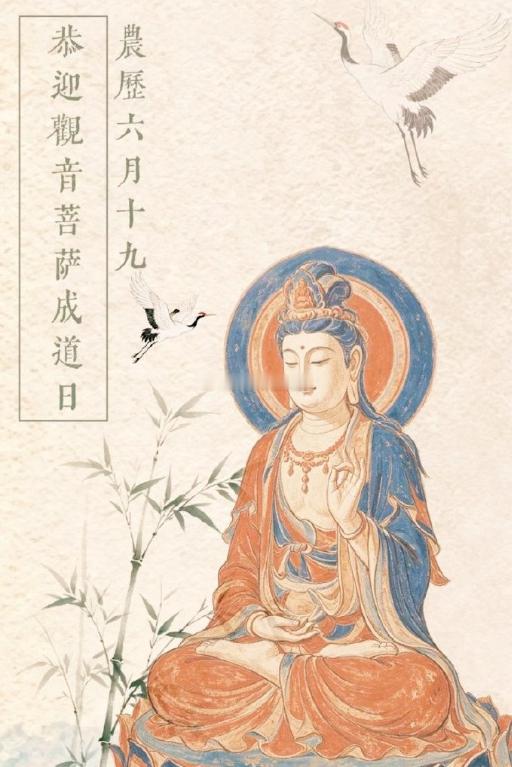 農歷六月十九
恭迎觀音菩萨成道日